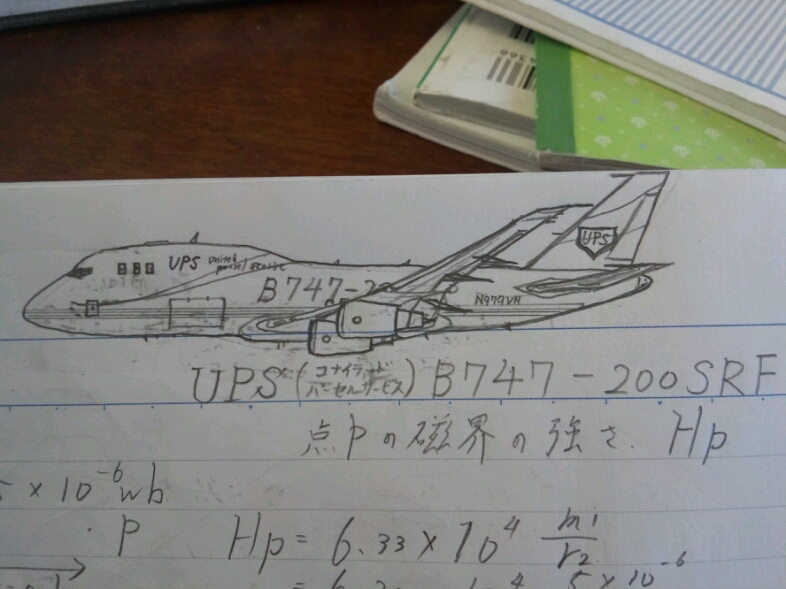 4366
UPS
UPS united parsel service
B747-20
N979VN
UPS (ユナイテッド パーセルサービス) B747-200SRF
点Pの磁界の強さ. Hp
5×10⁻⁶ wb
P Hp = 6.33×10⁴ m₁/r²
5×10⁻⁶